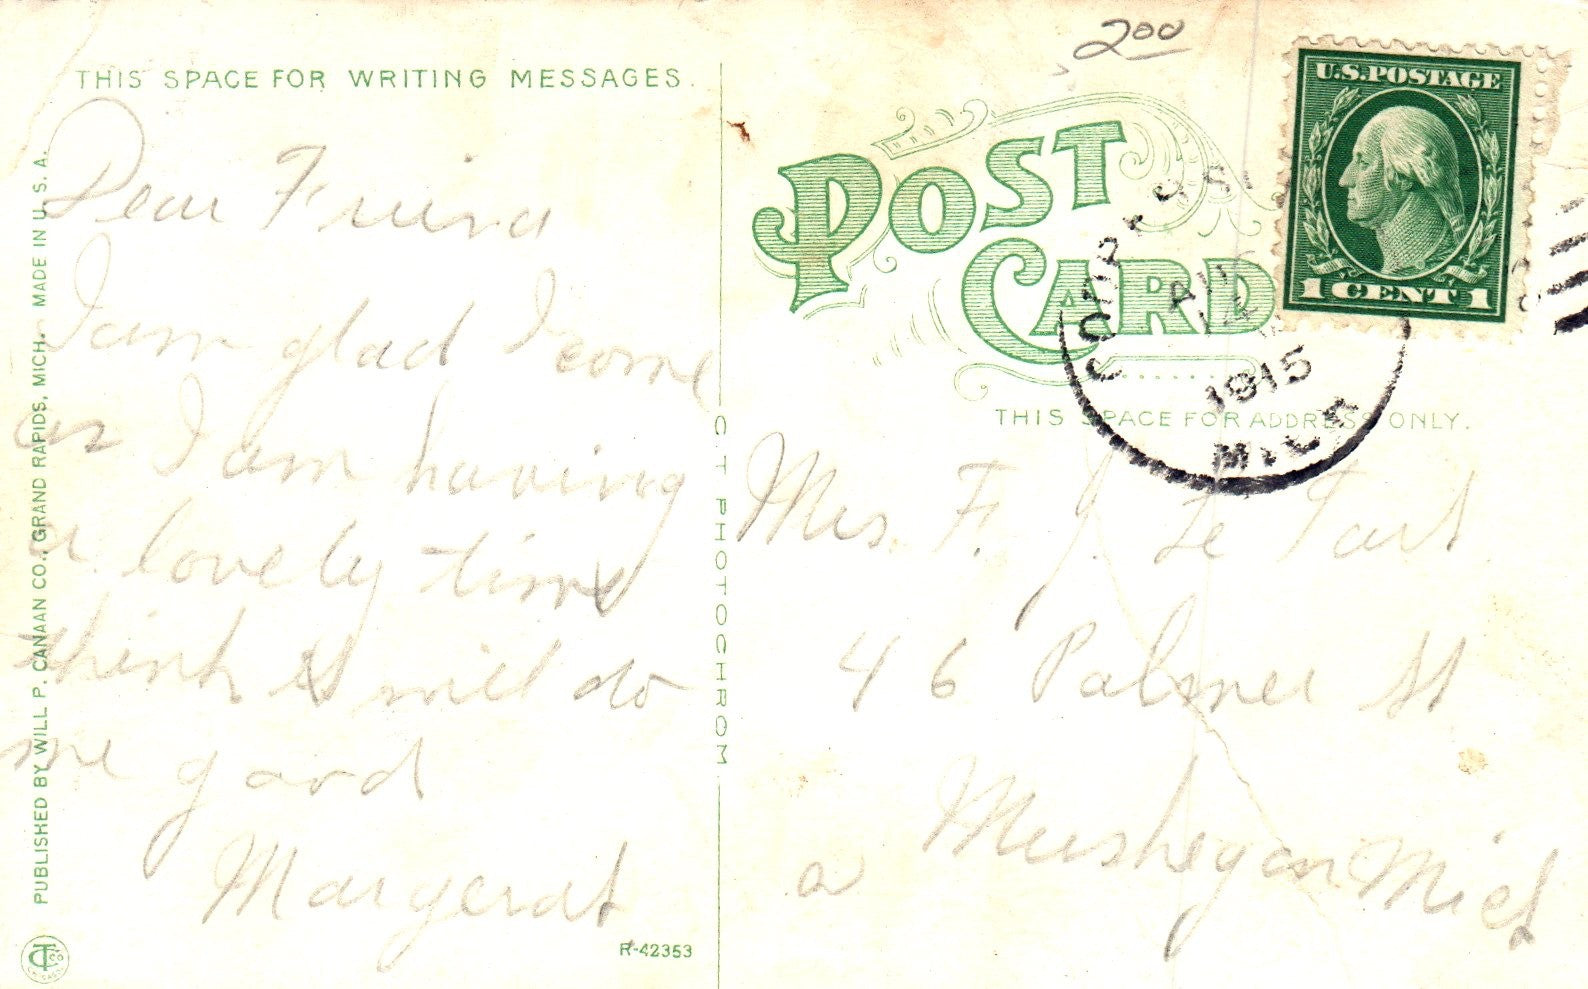 THIS SPACE FOR WRITING MESSAGES.
Dear Friend
I am glad I come
as I am having
a lovely time
think it will do
me good
Margerat
PUBLISHED BY WILL P. CANAAN CO., GRAND RAPIDS, MICH. MADE IN U. S. A.
R-42353
C. T. PHOTOCHROM
200
POST
CARD
THIS SPACE FOR ADDRESS ONLY.
U.S. POSTAGE
1 CENT 1
14
1915
MICH
Mrs. F. J. Le Tart
46 Palmer St
Muskegon Mich
a